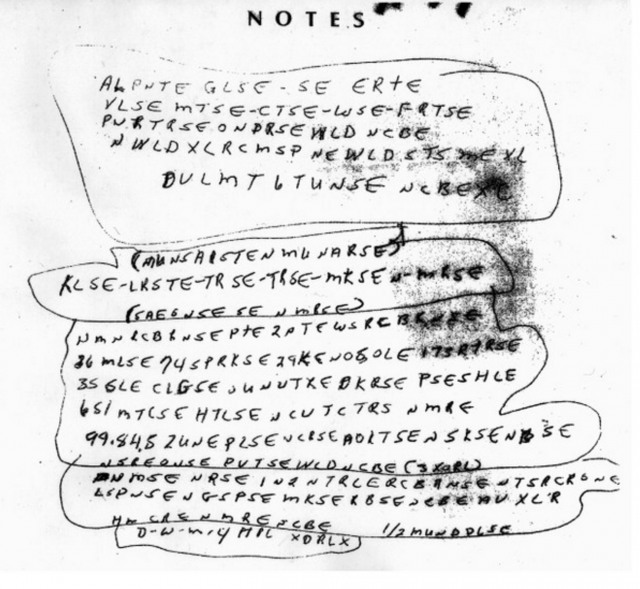 NOTES
ALPNTE GLSE-SE ERTE
VLSE MTSE-CTSE-WSE-FRTSE
PNRTRSE ONDRSE WLD NCBE
NWLD XLRCMSP NEWLD STS ME XL
DULMT 6 TUNSE NCBE XC
(MUNSAISTEN MUNARSE)
KLSE-LRSTE-TRSE-TRSE-MKSE N-MRSE
(SAEGNSE SE N MRSE)
NMNRCBRNSE PTE 2 PTEWSRCBRNSE
36 MLSE 74 SPRKSE 29KENOSOLE 173RTRSE
35 GLE CLGSE UNUTXE DKRSE PSESHLE
651 MTCSE HTLSE NCUTCTRS NMRE
99.84.52 UNE PLSE NCRSE AOLTSE NSKSE NBSE
NSREONSE PVTSE WLD NCBE (3 XORL)
NMSE NRSE IN2NTRLERCBRNSE NTSRCRONE
LSPNSE NGSPSE MKSERBSE NCBE AUXLR
HM CRE NMRE NCBE 1/2 MUNDDLSE
D-W-M-4 HPL XDRLX